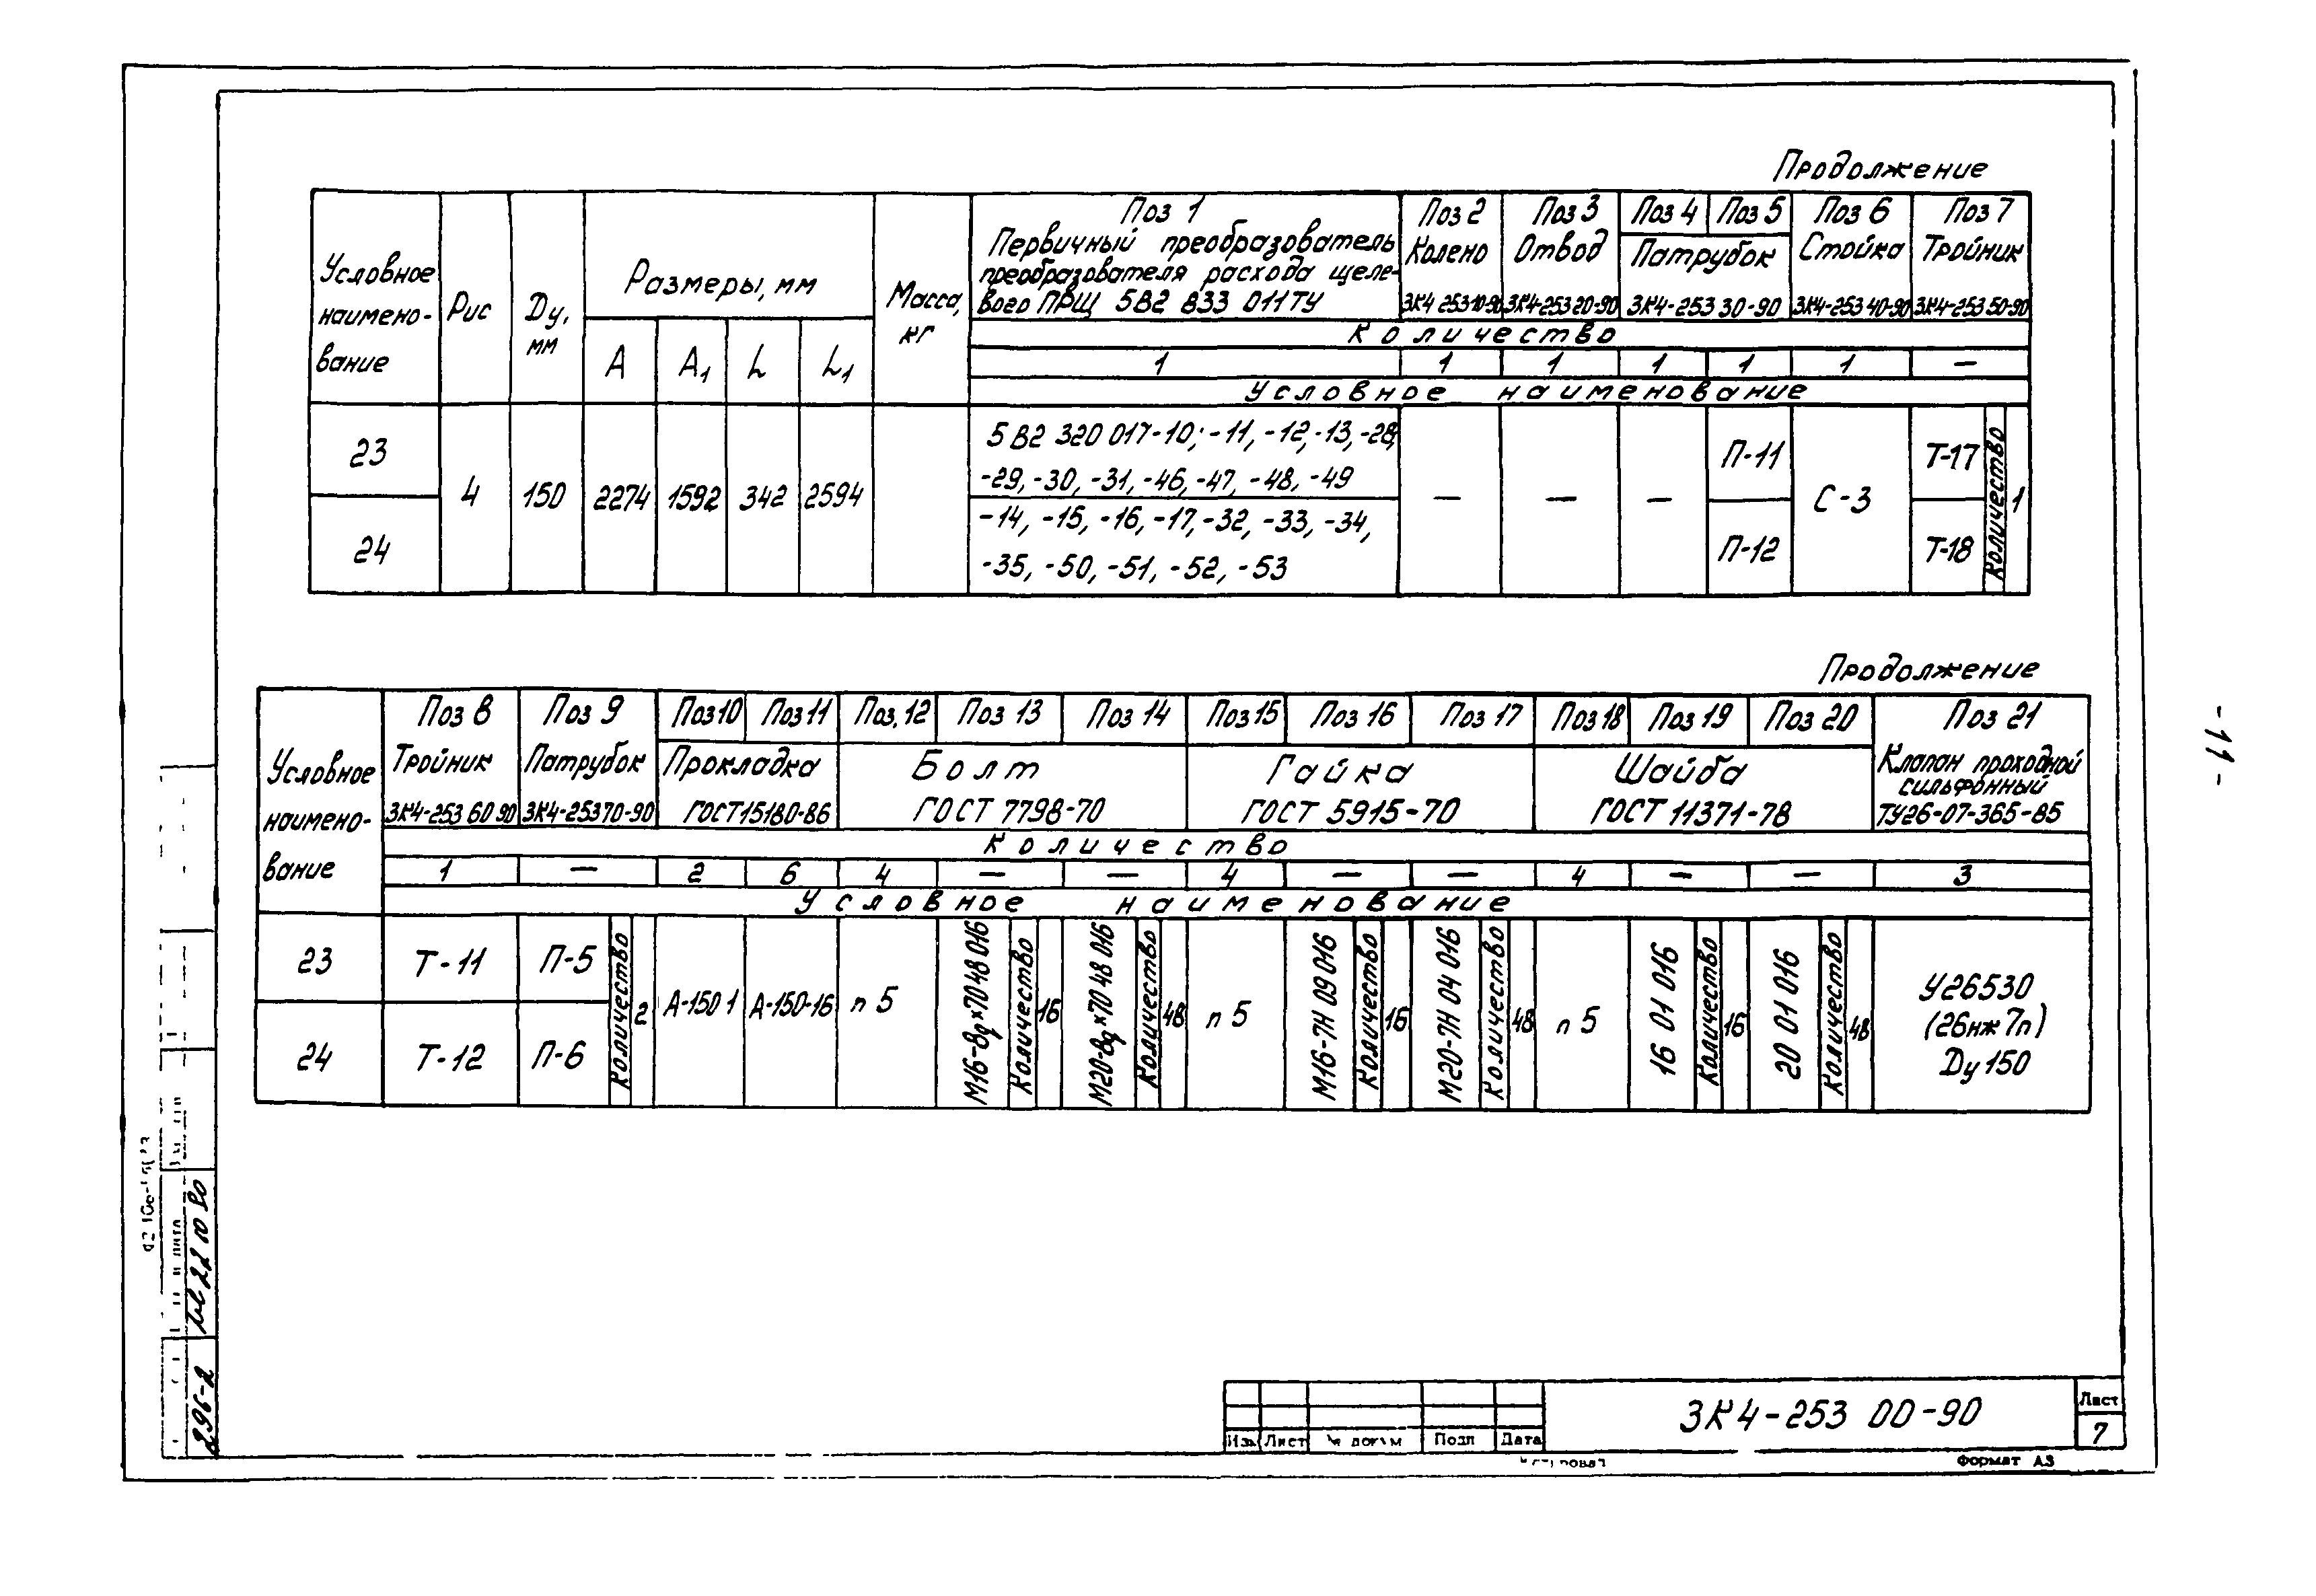 Продолжение
Условное наимено- вание
Рис
Ду, мм
Размеры, мм
А А1 L L1
Масса, кг
Поз 1
Первичный преобразователь
преобразователя расхода щеле-
вого ПРЩ 5В2 833 011ТУ
Поз 2 Колено ЗК4 253 10-90
Поз 3 Отвод ЗК4-253 20-90
Поз 4 Поз 5 Патрубок ЗК4-253 30-90
Поз 6 Стойка ЗК4-253 40-90
Поз 7 Тройник ЗК4-253 50-90
Количество
1 1 1 1 1 1 —
Условное наименование
23
24
4 150 2274 1592 342 2594
5В2 320 017-10; -11, -12,-13,-28,
-29, -30, -31, -46, -47, -48, -49
-14, -15, -16, -17, -32, -33, -34,
-35, -50, -51, -52, -53
— — —
П-11
П-12
С-3
Т-17
Т-18
Количество 1
Продолжение
Условное наимено- вание
Поз 8 Тройник ЗК4-253 60 90
Поз 9 Патрубок ЗК4-253 70-90
Поз 10 Поз 11 Прокладка ГОСТ 15180-86
Поз. 12 Поз 13 Поз 14 Болт ГОСТ 7798-70
Поз 15 Поз 16 Поз 17 Гайка ГОСТ 5915-70
Поз 18 Поз 19 Поз 20 Шайба ГОСТ 11371-78
Поз 21
Клапан проходной
сильфонный
ТУ26-07-365-85
Количество
1 — 2 6 4 — — 4 — — 4 — — 3
Условное наименование
23 Т-11 П-5
24 Т-12 П-6
Количество 2
А-150 1
А-150-16
п 5
М16-8g×70 48 016 Количество 16
М20-8g×70 48 016 Количество 48
п 5
М16-7Н 09 016 Количество 16
М20-7Н 04 016 Количество 48
п 5
16 01 016 Количество 16
20 01 016 Количество 48
У26530
(26нж 7п)
Ду 150
-11-
296-2
ЗК4-253 00-90
Лист
7
Изм Лист № докум Подп Дата
Формат А3